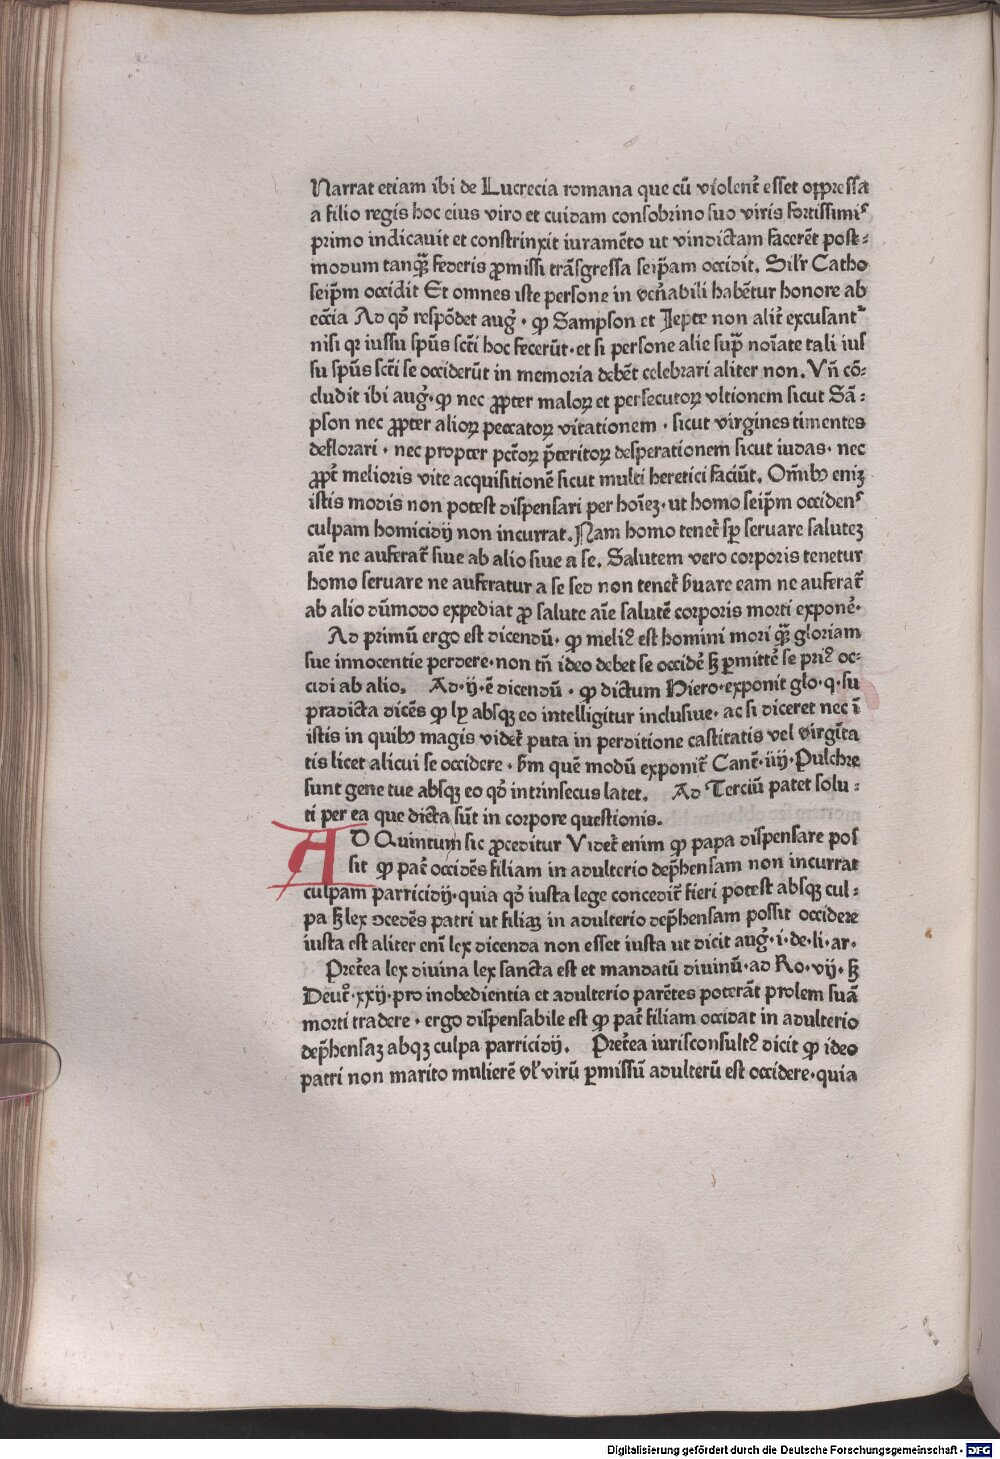 Narrat etiam ibi de Lucrecia romana que cū violent̄ esset oppressa
a filio regis hoc eius viro et cuidam consobrino suo viris fortissimiꝰ
primo indicauit et constrinxit iuramēto ut vindictam facerēt post⸗
modum tanqꝫ̄ federis ꝓmissi trāsgressa seip̄am occidit. Sil'r Catho
seip̄m occidit Et omnes iste persone in ven̄abili habētur honore ab
ecc̄ia Ad qd̄ respōdet auḡ · ꝙ Sampson et Iepte non alit̄ excusant᷑
nisi qr iussu spūs sc̄ti hoc fecerūt · et si persone alie sup̄ noīate tali ius
su spūs sc̄ti se occiderūt in memoria debēt celebrari aliter non. Vn̄ cō⸗
cludit ibi auḡ · ꝙ nec ꝓpter maloꝝ et persecutoꝝ vltionem sicut Sā⸗
pson nec ꝓpter alioꝝ peccatoꝝ vitationem · sicut virgines timentes
deflorari · nec propter pct̄oꝝ p̄teritoꝝ desperationem sicut iudas · nec
ꝓpt̄ melioris vite acquisitionē sicut multi heretici faciūt. Om̄ibꝫ enīꝫ
istis modis non potest dispensari per hoīeꝫ · ut homo seip̄m occidenˢ
culpam homicidij non incurrat. Nam homo tenet᷑ sꝑ seruare saluteꝫ
aīe ne auferat᷑ siue ab alio siue a se. Salutem vero corporis tenetur
homo seruare ne auferatur a se sed non tenet᷑ ẜuare eam ne auferat᷑
ab alio dūmodo expediat ꝓ salute aīe salutē corporis morti exponē᷑ ·
Ad primū ergo est dicendū · ꝙ meliꝰ est homini mori qꝫ̄ gloriam
sue innocentie perdere · non tn̄ ideo debet se occidē᷑ ſꝫ ꝑmittē᷑ se priꝰ oc⸗
cidi ab alio. Ad · ij · ē dicendū · ꝙ dictum Hiero · exponit glo · q · su
pradicta dicēs ꝙ ly absqꝫ eo intelligitur inclusiue · ac si diceret nec ī
istis in quibꝫ magis videt᷑ puta in perditione castitatis vel virgīta
tis licet alicui se occidere · ẜm quē modū exponit᷑ Cant̄ · iiij · Pulchre
sunt gene tue absqꝫ eo qd̄ intrinsecus latet. Ad Terciū patet solu⸗
ti per ea que dicta sūt in corpore questionis.
AD Quintum sic ꝓceditur Videt᷑ enim ꝙ papa dispensare pos
sit ꝙ pat̄ occidēs filiam in adulterio dep̄hensam non incurrat
culpam parricidij · quia qd̄ iusta lege concedit᷑ fieri potest absqꝫ cul⸗
pa ſꝫ lex ꝯcedēs patri ut filiaꝫ in adulterio dep̄hensam possit occidere
iusta est aliter enī lex dicenda non esset iusta ut dicit auḡ · i · de · li · ar ·
Pret̄ea lex diuina lex sancta est et mandatū diuinū · ad Ro · vij · ſꝫ
Deut̄ · xxij · pro inobedientia et adulterio parētes poterāt prolem suā
morti tradere · ergo dispensabile est ꝙ pat̄ filiam occidat in adulterio
dep̄hensaꝫ abqꝫ culpa parricidij. Pret̄ea iurisconsultꝰ dicit ꝙ ideo
patri non marito mulierē vl' virū ꝑmissū adulterū est occidere · quia
Digitalisierung gefördert durch die Deutsche Forschungsgemeinschaft - DFG